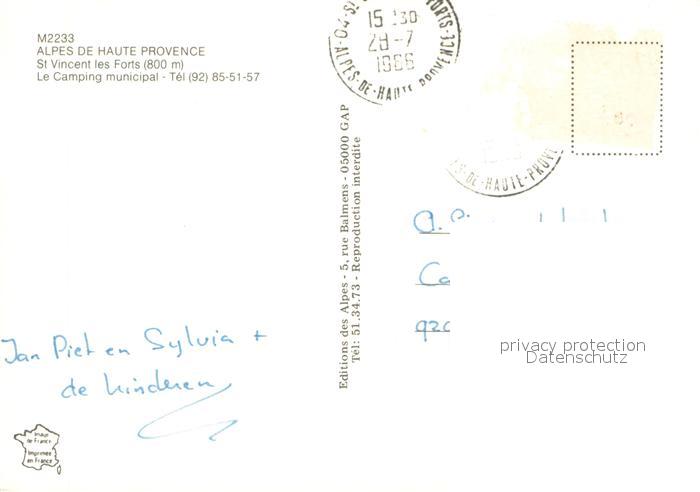 M2233
ALPES DE HAUTE PROVENCE
St Vincent les Forts (800 m)
Le Camping municipal - Tél (92) 85-51-57
15 30
28-7
1986
04-ALPES-DE-HAUTE PROVENCE
S-DE-HAUTE-PROV
Editions des Alpes - 5, rue Balmens - 05000 GAP
Tél: 51.34.73 - Reproduction interdite
Ca
920
privacy protection
Datenschutz
Jan Piet en Sylvia +
de kinderen
Image
de France
Imprimée
en France